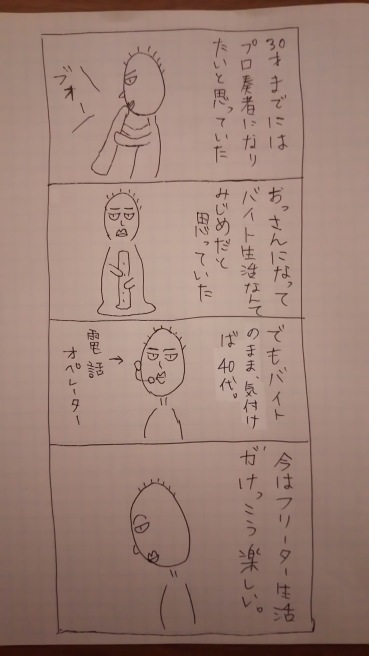 30才までには
プロ奏者になり
たいと思っていた
ブオー
おっさんになって
バイト生活なんて
みじめだと
思っていた
でもバイト
のまま、気付け
ば40代。
電話
オペレーター
今はフリーター生活
がけっこう楽しい。